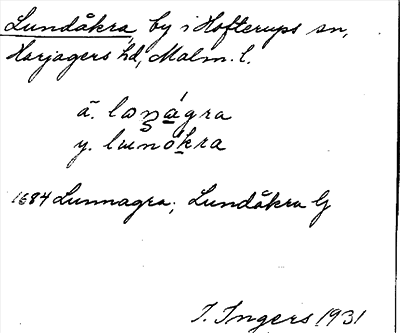 Lundåkra, by i Hofterups sn,
Harjagers hd, Malm. l.
ä. loṉágra
y. lunókra
1684 Lunnagra; Lundåkra G
I. Ingers 1931